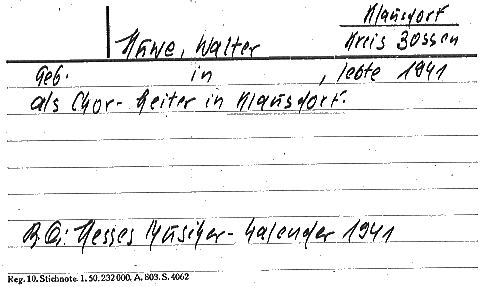 Klausdorf
Kreis Zossen
Huwe, Walter
Geb. in , lebte 1941
als Chor-Leiter in Klausdorf.
B.Qu: Hesses Musiker-Kalender 1941
Reg. 10. Stichnote. 1. 50. 232 000. A. 803. S. 4062